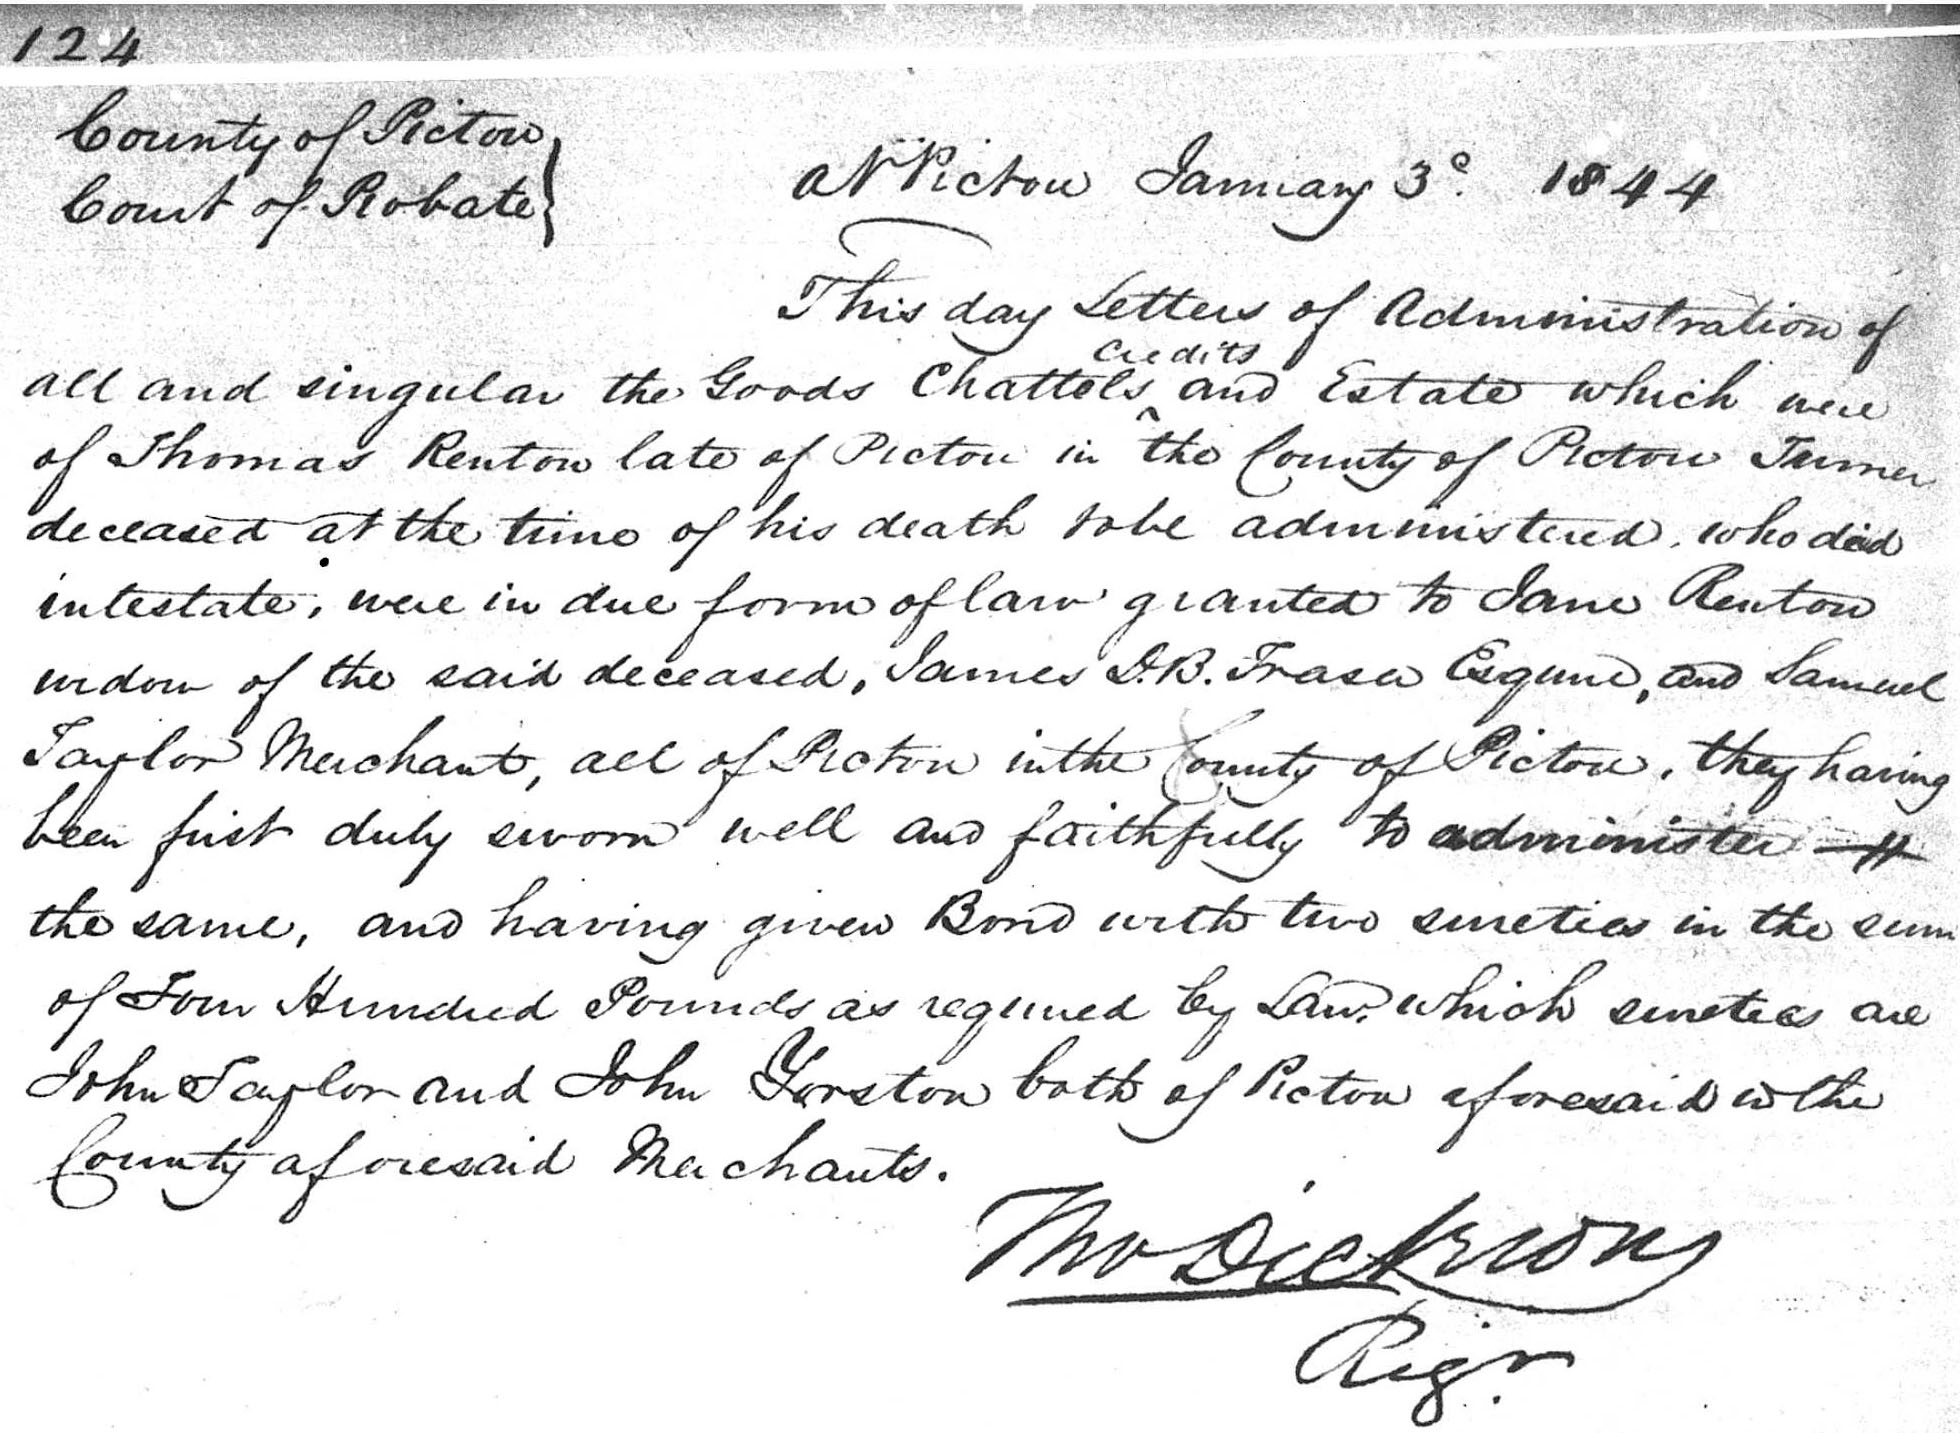 124
County of Pictou
Court of Probate
At Pictou January 3d. 1844
This day Letters of Administration of
credits
all and singular the Goods Chattels ^ and Estate which were
of Thomas Renton late of Pictou in the County of Pictou Turner
deceased at the time of his death to be administered, who died
intestate, were in due form of law granted to Jane Renton
widow of the said deceased, James D.B. Fraser Esquire, and Samuel
Taylor Merchant, all of Pictou in the County of Pictou, they having
been first duly sworn well and faithfully to administer
the same, and having given Bond with two sureties in the sum
of Four Hundred Pounds as required by Law, which sureties are
John Taylor and John Yorston both of Pictou aforesaid in the
County aforesaid Merchants.
Tho Dickson
Regr.